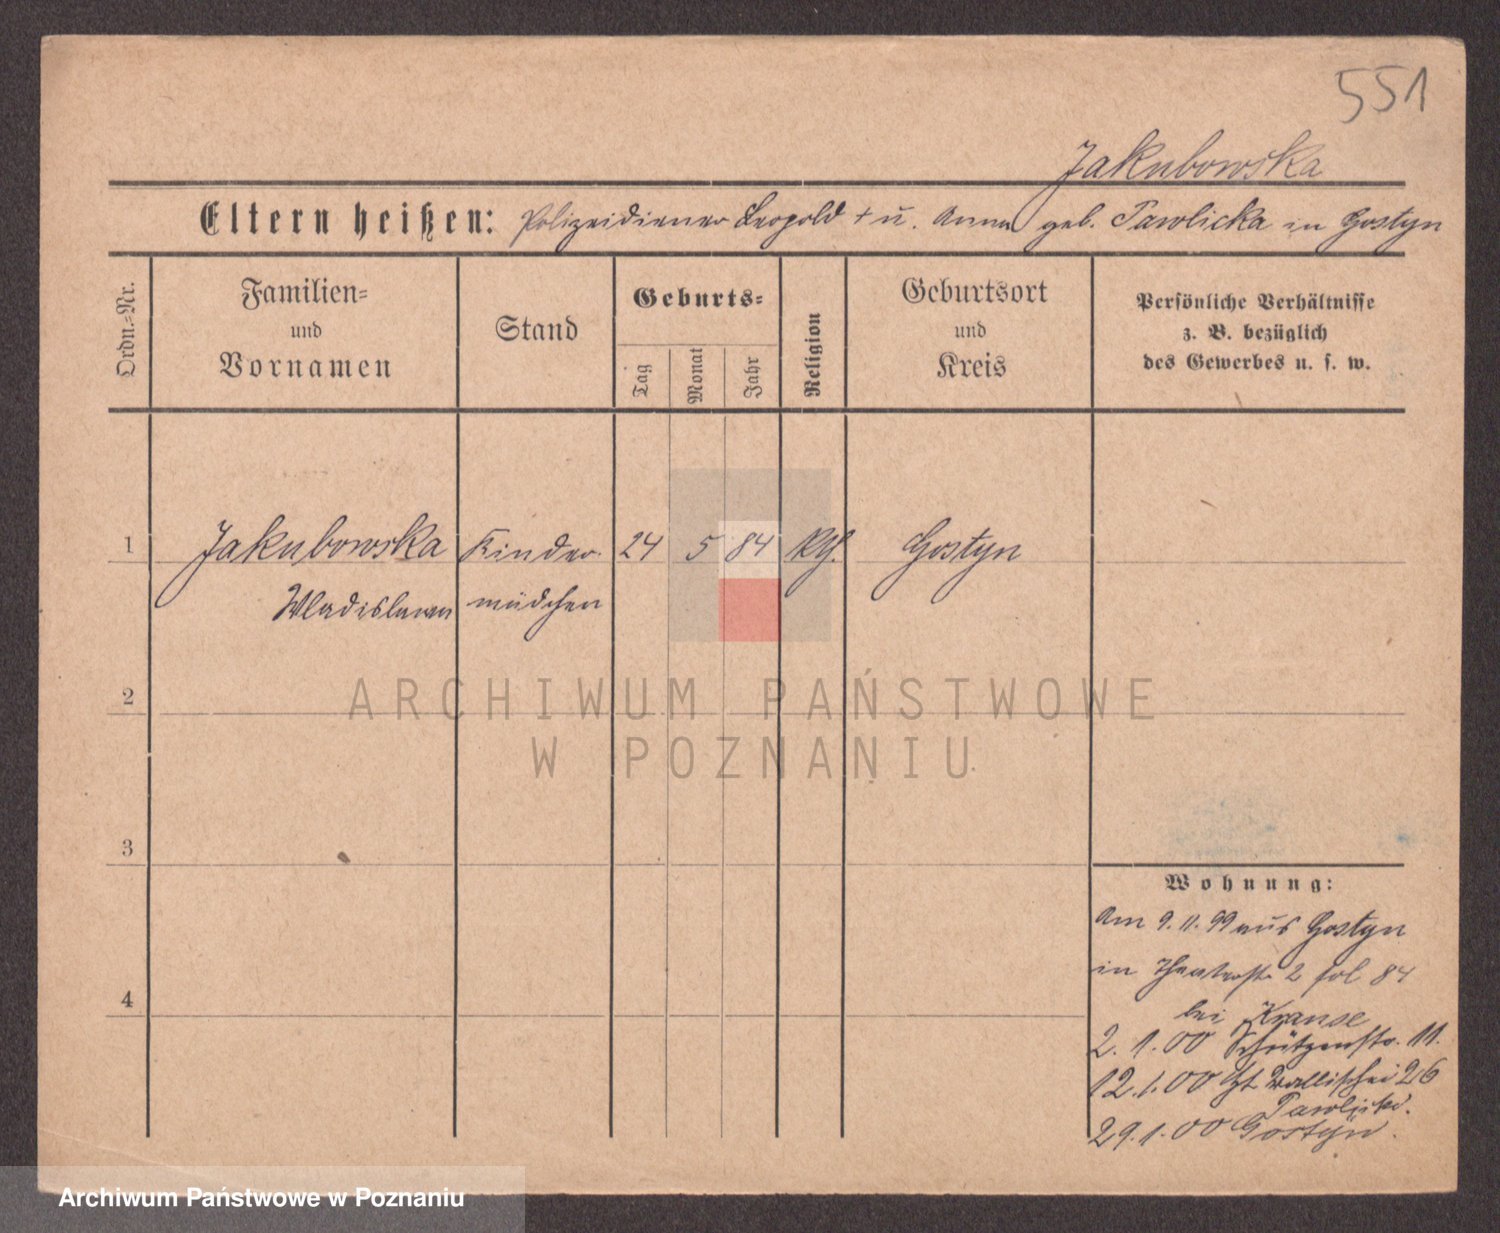 551
Jakubowska
Eltern heißen: Polizeidiener Leopold + u. Anna geb. Pawlicka in Gostyn
Ordn.-Nr.
Familien-
und
Vornamen
Stand
Geburts-
Tag
Monat
Jahr
Religion
Geburtsort
und
Kreis
Persönliche Verhältnisse
z. B. bezüglich
des Gewerbes u. s. w.
1 Jakubowska Kinder- 24 5 84 Gostyn
Wladislawa mädchen
2
ARCHIWUM PAŃSTWOWE
W POZNANIU
3
Wohnung:
Am 9.11.99 aus Gostyn
in Theaterstr 2 fol 84
bei Krause
4
2.1.00 Schützenstr. 11.
12.1.00 Wallischei 26
Pawlicki.
29.1.00 Gostyn.
Archiwum Państwowe w Poznaniu